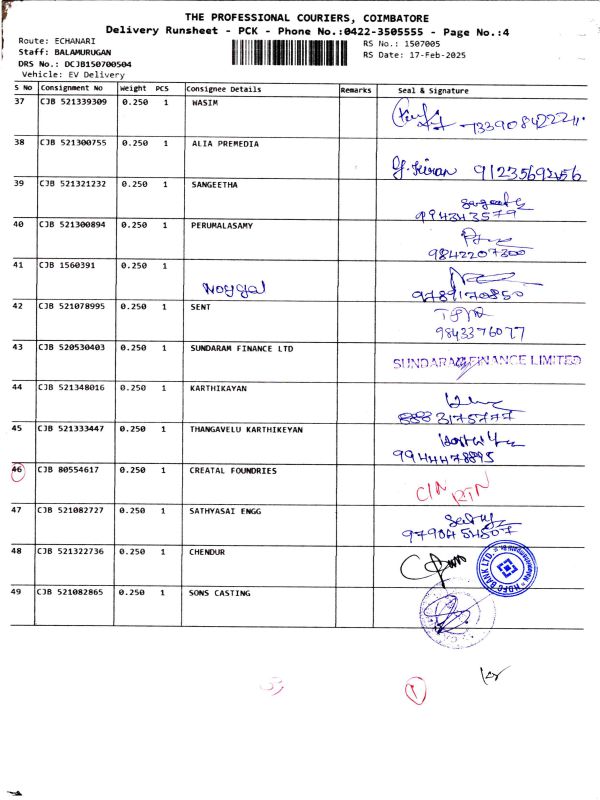 THE PROFESSIONAL COURIERS, COIMBATORE
Delivery Runsheet - PCK - Phone No.:0422-3505555 - Page No.:4
Route: ECHANARI
RS No.: 1507005
Staff: BALAMURUGAN
RS Date: 17-Feb-2025
DRS No.: DCJB150700504
Vehicle: EV Delivery
S No Consignment No Weight PCS Consignee Details Remarks Seal & Signature
37 CJB 521339309 0.250 1 WASIM
38 CJB 521300755 0.250 1 ALIA PREMEDIA
39 CJB 521321232 0.250 1 SANGEETHA
9943443579
40 CJB 521300894 0.250 1 PERUMALASAMY
9842207300
41 CJB 1560391 0.250 1
9789170850
42 CJB 521078995 0.250 1 SENT
9843376077
43 CJB 520530403 0.250 1 SUNDARAM FINANCE LTD SUNDARAM FINANCE LIMITED
44 CJB 521348016 0.250 1 KARTHIKAYAN
45 CJB 521333447 0.250 1 THANGAVELU KARTHIKEYAN
9944478895
46 CJB 80554617 0.250 1 CREATAL FOUNDRIES C/N RTN
47 CJB 521082727 0.250 1 SATHYASAI ENGG
9790454807
48 CJB 521322736 0.250 1 CHENDUR HDFC BANK LTD.
49 CJB 521082865 0.250 1 SONS CASTING